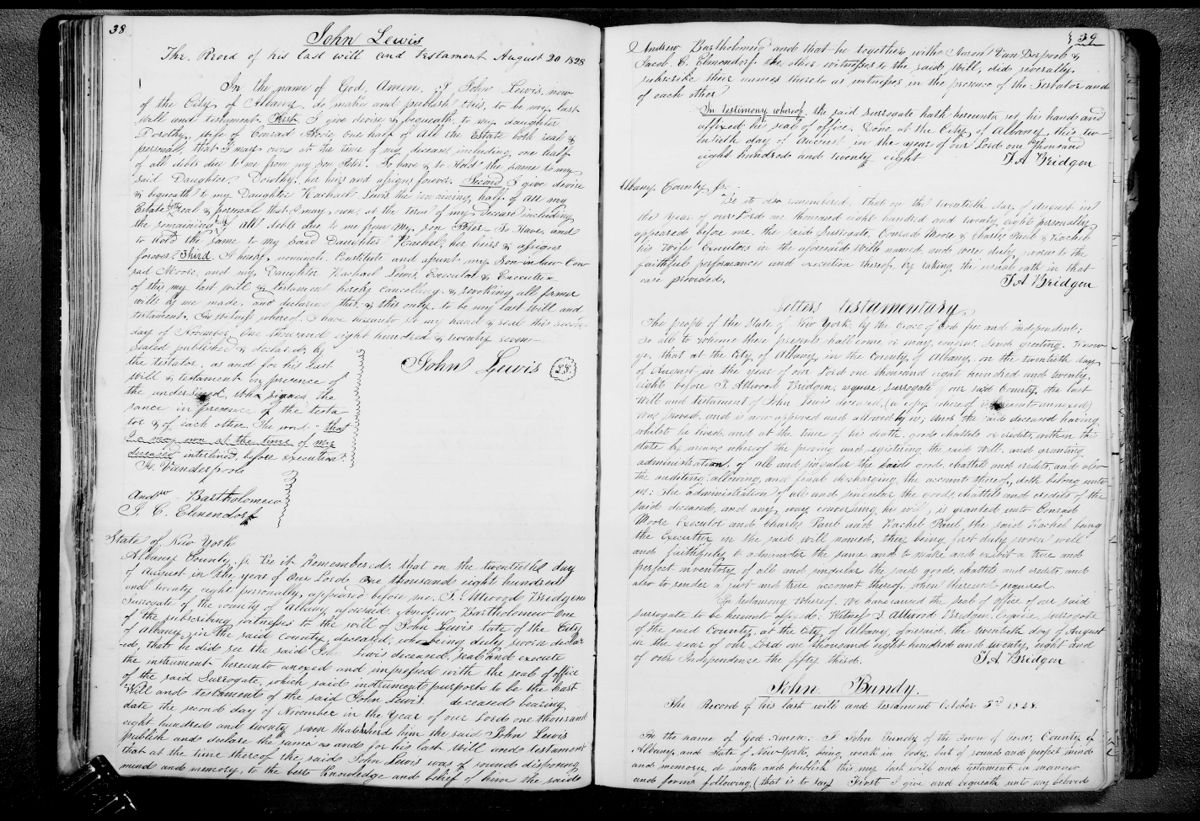 38
John Lewis
The Record of his last will and testament August 20 1828
In the name of God, Amen. I John Lewis, now
of the City of Albany, do make and publish this, to be my last
will and testament. First I give devise & bequeath to my daughter
Dorothy, wife of Conrad Moore One half of all the Estate both real &
personal, that I may own at the time of my decease, including one half
of all debts due to me from my son Peter. To have & to Hold the same to my
said Daughter, Dorothy, her heirs and assigns forever. Second I give devise
& bequeath to my Daughter Rachael Lewis the remaining half of all my
Estate real & personal that I may own, at the time of my Decease including
the remaining ½ all debts due to me from my son Peter To Have, and
to Hold the same to my said Daughter Rachel, her heirs & assigns
forever. Third I hereby nominate Constitute and appoint my Son-in-law Con-
rad Moore, and my Daughter Rachael Lewis, Executor & Executrix
of this my last will & testament hereby cancelling & revoking all former
wills by me made, and declaring this, & this only, to be my last Will and
testament. In witness whereof, I have hereunto set my hand & seal this second
day of November, One thousand eight hundred & twenty seven
Sealed published & declared by
the testator, as and for his last
will & testament in presence of
the undersigned, who signed the
same in presence of the testa-
tor & of each other. The word "that
I may own at the time of my
decease" interlined before execution
John Lewis L.S.
A. Vanderpool
Andw. Bartholomew
J. C. Elmendorf
State of New York
Albany County, ss. Be it Remembered that on the twentieth day
of August in the year of our Lord One thousand eight hundred
and twenty eight personally, appeared before me, T. Attwood Bridgen
Surrogate of the county of Albany aforesaid Andrew Bartholomew One
of the subscribing witnesses to the will of John Lewis late of the City
of Albany, in the said county, deceased, who being duly sworn declar-
ed, that he did see the said John Lewis deceased, seal and execute
the instrument hereunto annexed and impressed with the seal of office
of the said Surrogate, which said instrument purports to be the last
Will and testament of the said John Lewis deceased bearing
date the second day of November in the Year of our Lord one thousand
eight hundred and twenty seven that heard him the said John Lewis
publish and declare the same as and for his last Will and testament
that at the time thereof the said John Lewis was of sound disposing
mind and memory, to the best knowledge and belief of him the said
39
Andrew Bartholomew and that he together with Aaron Vanderpool &
Jacob C. Elmendorf the other witnesses to the said Will, did severally
subscribe their names thereto as witnesses in the presence of the Testator and
of each other
In testimony whereof the said surrogate hath hereunto set his hand and
affixed his seal of office. Done at the City of Albany this twe-
ntieth day of August in the year of our Lord one thousand
eight hundred and twenty eight T. A. Bridgen
Albany County ss.
Be it also remembered, that on the twentieth day of August in
the year of our Lord one thousand eight hundred and twenty eight personally
appeared before me, the said surrogate Conrad Moore & Charles Paul & Rachel
his Wife Executors in the aforesaid Will named, and were duly sworn to the
faithful performance and execution thereof, by taking the usual oath in that
case provided. T. A. Bridgen
Letters Testamentary
The people of the State of New York, by the Grace of God free and Independent:
To all to whom these presents shall come or may concern Send greeting. Know
ye, that at the City of Albany, in the County of Albany, on the twentieth day
of August in the year of our Lord one thousand eight hundred and twenty
eight before T. Attwood Bridgen, esquire, surrogate of our said County the last
Will and testament of John Lewis deceased (a copy whereof is hereunto annexed)
was proved, and is now approved and allowed by us; and the said deceased having
whilst he lived, and at the time of his death, goods chattels or credits, within this
state by means whereof the proving and registering the said Will, and granting
administration, of all and singular the said goods, chattels and credits, and also
the auditing, allowing, and final discharging, the account thereof, doth belong unto
us: the administration of all and singular the goods, chattels and credits of the
said deceased, and any way concerning his will, is granted unto Conrad
Moore Executor and Charles Paul and Rachel Paul, the said Rachel being
the Executrix in the said will named, they being first duly sworn well
and faithfully to administer the same and to make and exhibit a true and
perfect inventory of all and singular the said goods, chattels and credits, and
also to render a just and true account thereof, when thereunto required.
In testimony whereof, We have caused the seal of office of our said
surrogate to be hereunto affixed: Witness T. Attwood Bridgen esquire surrogate
of the said County, at the City of Albany aforesaid, the twentieth day of August
in the year of our Lord one thousand eight hundred and twenty, eight and
of our Independence the fifty third. T. A. Bridgen
John Bundy.
The Record of his last will and testament October 3d 1828
In the name of God Amen. I John Bundy of the Town of Berne, County of
Albany, and State of New York, being weak in body, but of sound and perfect mind
and memory, do make and publish this my last will and testament in manner
and form following (that is to say) First I give and bequeath unto my beloved